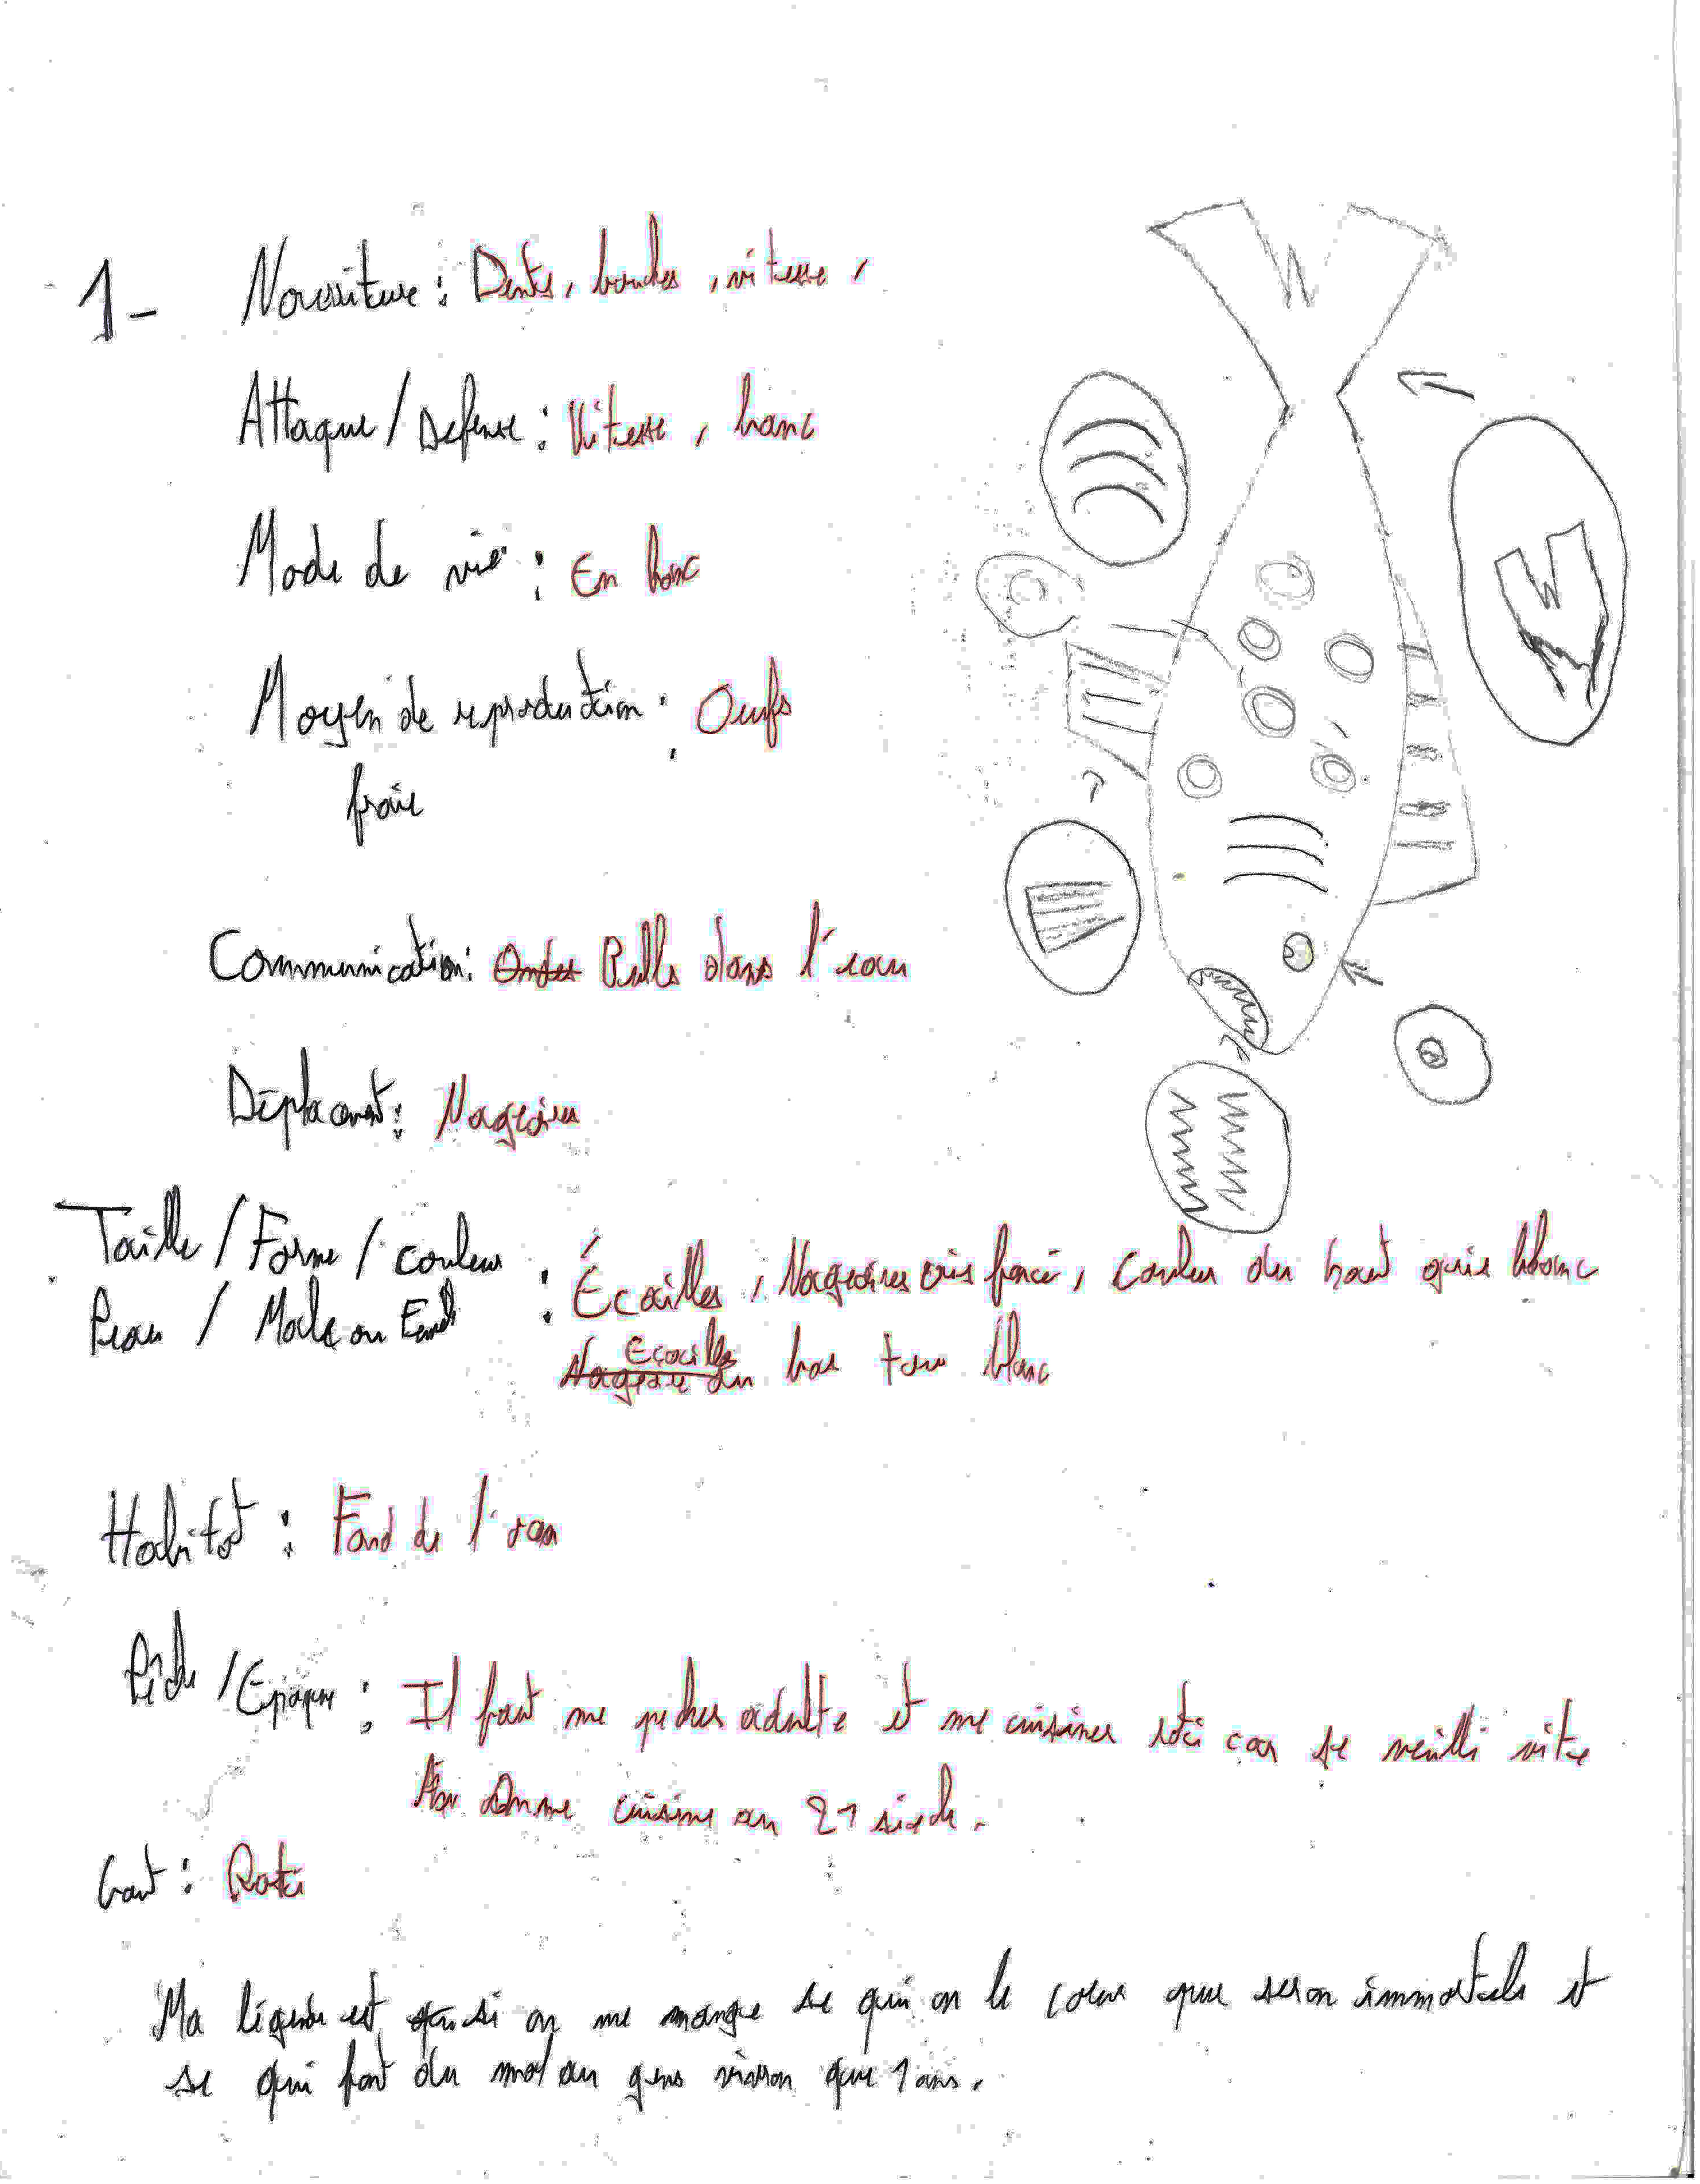 1- Nourriture : Dents, bouches, vitesse,
Attaque / Defense : Vitesse, banc
Mode de vie : En banc
Moyen de reproduction : Oeufs
fraie
Communication : Ondes Bulle dans l'eau
Déplacement : Nageoires
Taille / Forme / couleur
Peau / Male ou Femelle : Écailles, Nageoires gris foncé, Couleur du haut gris blanc
Nageoire Ecailles du bas tou blanc
Habitat : Fond de l'eau
Pêche / Epoque : Il faut me pecher adulte et me cuisiner roti car je vieilli vite
On me cuisine au 21 siecle.
Gout : Roti
Ma légende est que si on me mange se qui on le coeur pur seron immortels et
se qui font du mal au gens vivron que 1 ans.